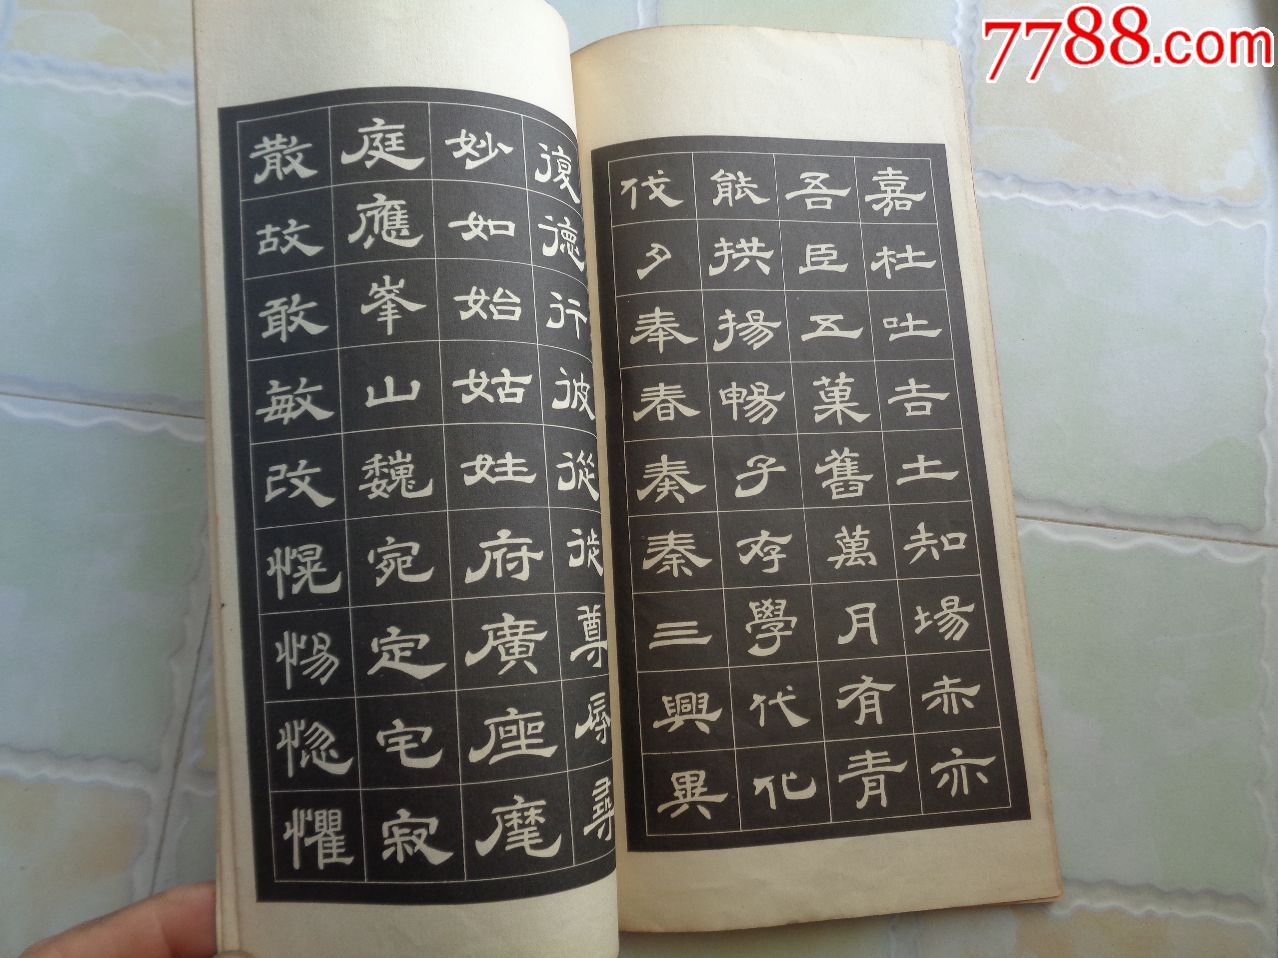 7788.com
嘉杜吐吉土知場赤亦
吾臣五菓舊萬月有青
能拱揚暢子存學代化
伐夕奉春奏秦三興異
復德行彼從徙尊辱尋
妙如始姑姓府廣座麾
庭應峯山魏宛定宅寂
散故敢敏改愰惕惚懼